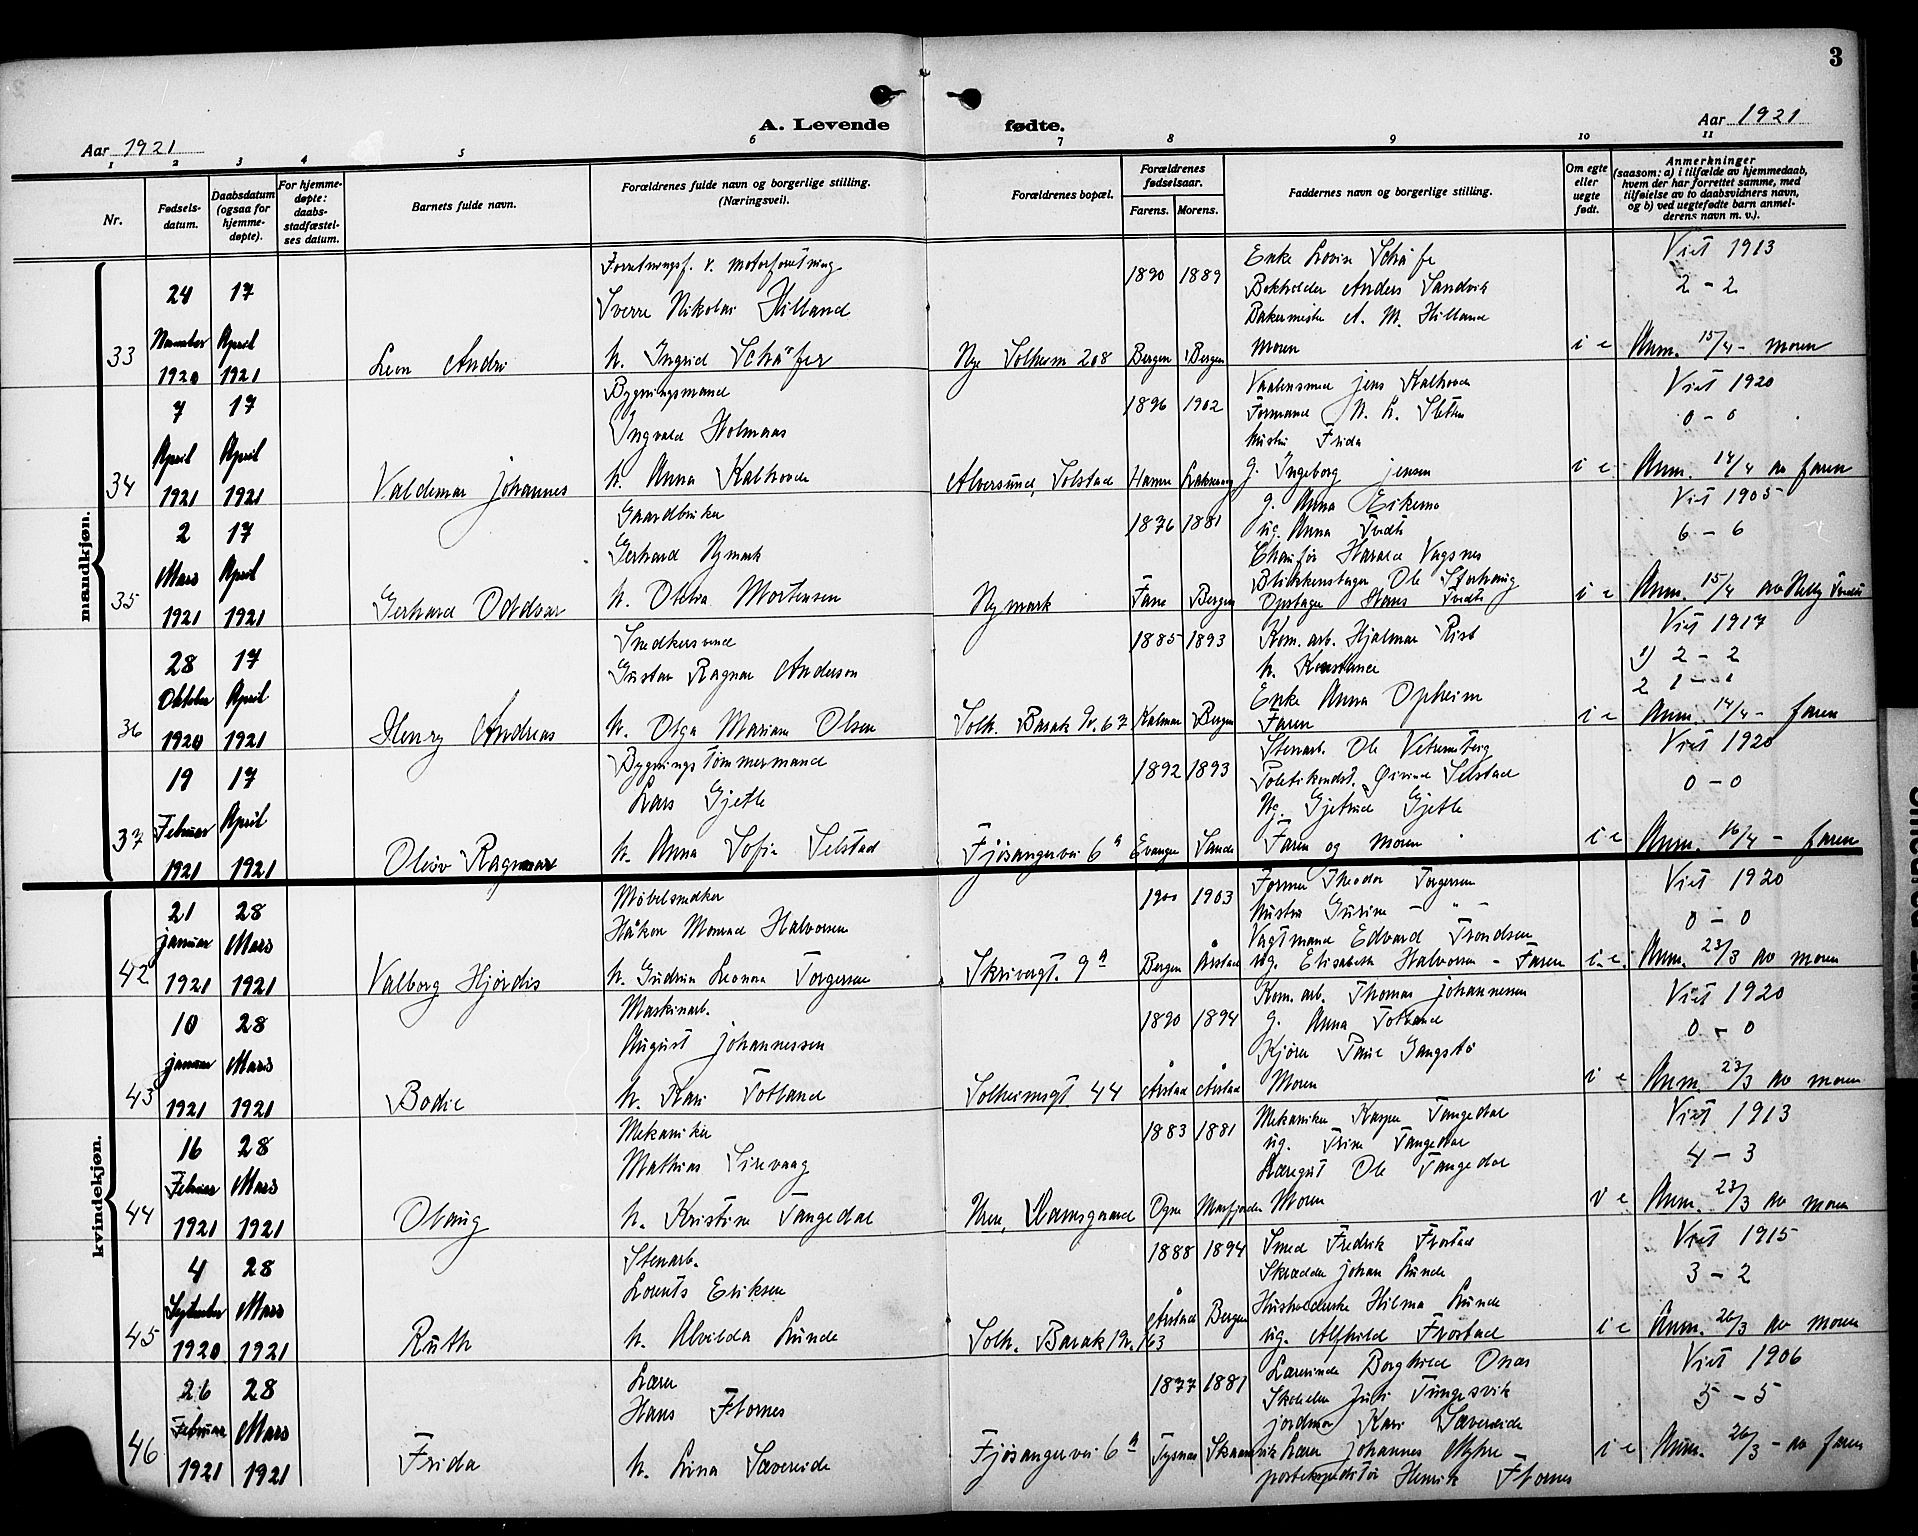 3
A. Levende fødte.
Aar 1921
Aar 1921
1 2 3 4 5 6 7 8 9 10 11
Nr.
Fødsels-
datum.
Daabsdatum
(ogsaa for
hjemme-
døpte).
For hjemme-
døpte:
daabs-
stadfæstel-
ses datum.
Barnets fulde navn.
Forældrenes fulde navn og borgerlige stilling.
(Næringsvei).
Forældrenes bopæl.
Forældrenes
fødselsaar.
Farens. Morens.
Faddernes navn og borgerlige stilling.
Om egte
eller
uegte
født.
Anmerkninger
(saasom: a) i tilfælde av hjemmedaab,
hvem der har forrettet samme, med
tilføielse av to daabsvidners navn,
og b) ved uegtefødte barn anmel-
derens navn m. v.).
mandkjøn.
33
24 November 1920
17 April 1921
Leon Andre
Forretningsf. v. Motorforretning
Sverre Nikolai Hilland
h. Ingrid Schäfer
Nye Solheim 208
1890 1889
Bergen Bergen
Enke Lovise Schäfer
Bokholder Anders Sandvik
Bakermester A. M. Hilland
Moren
i e
Viet 1913
2 - 2
Anm. 15/4 - moren
34
7 April 1921
17 April 1921
Valdemar Johannes
Bygningsmand
Ingvald Holmaas
h. Anna Kalhovde
Alversund, Solstad
1896 1902
Hamre
Jens Kalhovde
Formand
Frida
g. Ingeborg Jensen
i e
Viet 1920
0 - 0
Anm. 14/4 av faren
35
2 Mars 1921
17 April 1921
Gerhard Oddvar
Gaardbruker
Gerhard Nymark
h. Oletta Mortensen
Nymark
1876 1881
Fane Bergen
g. Anna Eikemo
ug. Anna Tvedt
Chaufør Harald Vagsnes
Blikkenslager Ole Storhaug
Opsager Hans Tvedt
i e
Viet 1905
6 - 6
Anm. 15/4 av Nelly Tvedt
36
28 Oktober 1920
17 April 1921
Henry Andreas
Snedkersvend
Gustav Ragnar Anderson
h. Olga Mariane Olsen
Solh. Barak 9v. 67
1885 1893
Kalmar Bergen
Kom. arb. Hjalmar Risb
h. Konstance
Enke Anna Opheim
Faren
i e
Viet 1917
1) 2 - 2
2 1 - 1
Anm. 14/4 - faren
37
19 Februar 1921
17 April 1921
Oleiv Ragnvar
Bygningstømmermand
Lars Gjetle
h. Anna Sofie Selstad
Fjøsangervei 6a
1892 1893
Evanger Sande
Stenarb. Ole
Politikonst. Øivind Selstad
Ug. Gjertrud Gjetle
Faren og moren
i e
Viet 1920
0 - 0
Anm. 16/4 - faren
kvindekjøn.
42
21 Januar 1921
28 Mars 1921
Valborg Hjørdis
Møbelsnedker
Håkon Monrad Halvorsen
h. Gudrun Leonora Torgersen
Skrivergt. 9a
1900 1903
Bergen Årstad
Former Theodor Torgersen
Hustru Gurine - " -
Vagtmand Edvard Trondsen
ug. Elisabeth Halvorsen - Faren
i e
Viet 1920
0 - 0
Anm. 23/3 av moren
43
10 Januar 1921
28 Mars 1921
Bodil
Maskinarb.
August Johannessen
h. Kari Totland
Solheimsgt. 44
1890 1894
Årstad Årstad
Kom. arb. Thomas Johannessen
g. Anna Totland
Kjører Paul Gangstø
Moren
i e
Viet 1920
0 - 0
Anm. 23/3 av moren
44
16 Februar 1921
28 Mars 1921
Olaug
Mekaniker
Mathias Sirevaag
h. Kristine Tangedal
Uren, Damsgaard
1883 1881
Ogne Masfjorden
Mekaniker Kasper Tangedal
ug. Trine Tangedal
Læregut Ole Tangedal
Moren
i e
Viet 1913
4 - 3
Anm. 23/3 av moren
45
4 September 1920
28 Mars 1921
Ruth
Stenarb.
Lorents Eriksen
h. Alvilda Lunde
Solh. Barak 12. 163
1888 1894
Årstad Bergen
Smed Fredrik Frostad
Skrædder Johan Lunde
Husholderske Hilma Lunde
ug. Alfhild Frostad
i e
Viet 1915
3 - 2
Anm. 26/3 av moren
46
26 Februar 1921
28 Mars 1921
Frida
Lærer
Hans Flornes
h. Lina Sævereide
Fjøsangervei 6a
1877 1881
Tysnes
Lærerinde Borghild Onar
Juli Tungesvik
Jordmor Kari Sævereide
Lærer Johannes Myhre -
postekspeditør Henrik Flornes
i e
Viet 1906
5 - 5
Anm. 26/3 - av faren